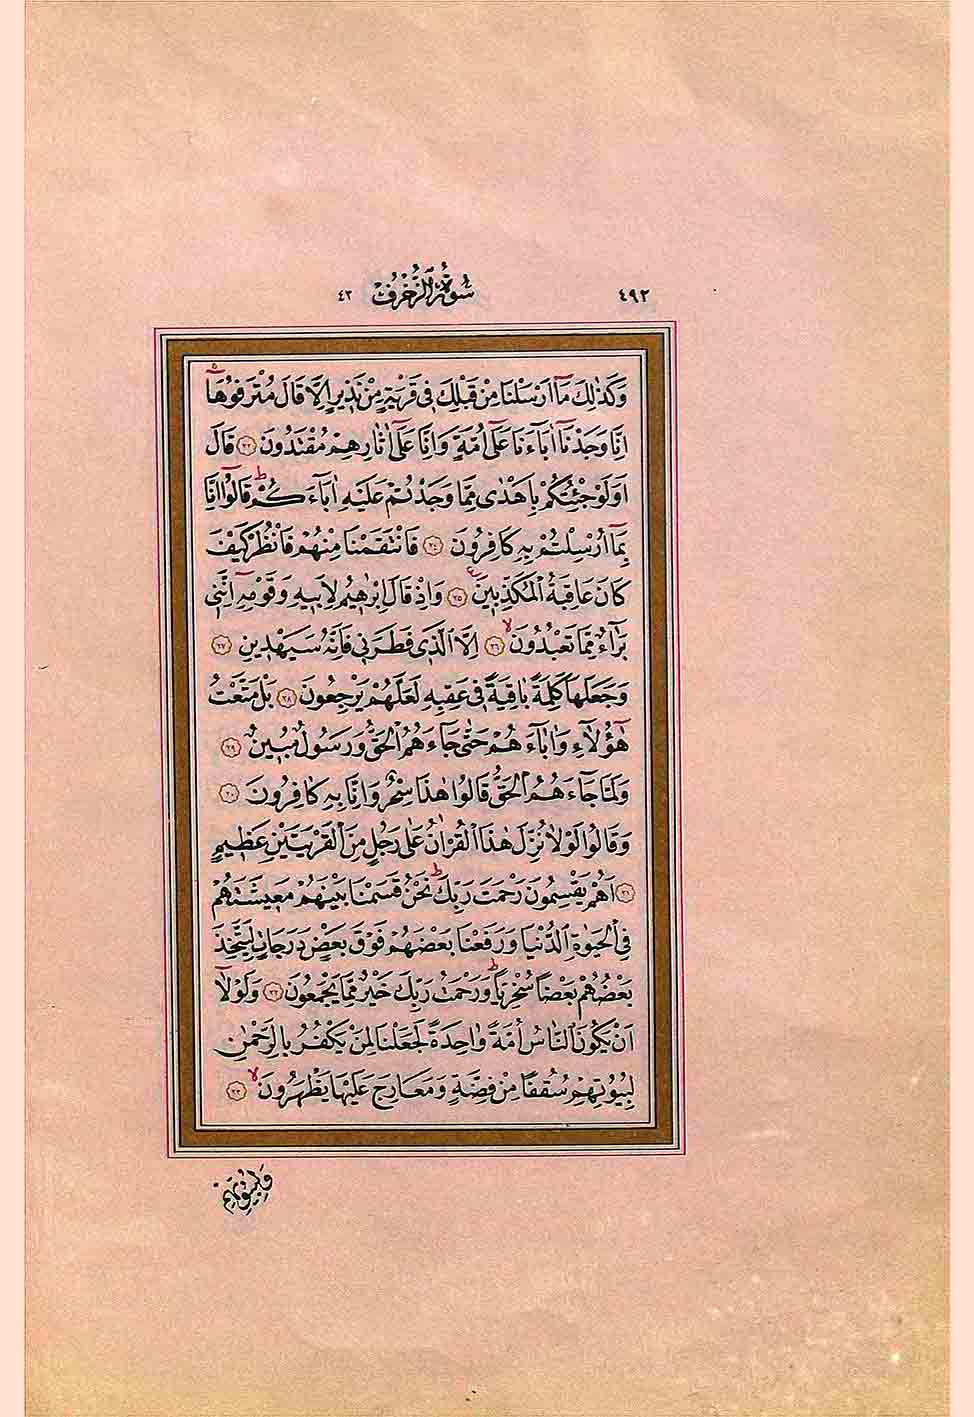 ٤٩٢ سُورَةُ الزُّخْرُفِ ٤٣
وَكَذٰلِكَ مَٓا اَرْسَلْنَا مِنْ قَبْلِكَ فٖى قَرْيَةٍ مِنْ نَذٖيرٍ اِلَّا قَالَ مُتْرَفُوهَٓاۙ
اِنَّا وَجَدْنَٓا اٰبَٓاءَنَا عَلٰٓى اُمَّةٍ وَاِنَّا عَلٰٓى اٰثَارِهِمْ مُقْتَدُونَ ﴿٢٣﴾ قَالَ
اَوَلَوْ جِئْتُكُمْ بِاَهْدٰى مِمَّا وَجَدْتُمْ عَلَيْهِ اٰبَٓاءَكُمْؕ قَالُٓوا اِنَّا
بِمَٓا اُرْسِلْتُمْ بِهٖ كَافِرُونَ ﴿٢٤﴾ فَانْتَقَمْنَا مِنْهُمْ فَانْظُرْ كَيْفَ
كَانَ عَاقِبَةُ الْمُكَذِّبٖينَ ﴿٢٥﴾ وَاِذْ قَالَ اِبْرٰهٖيمُ لِاَبٖيهِ وَقَوْمِهٖٓ اِنَّنٖى
بَرَٓاءٌ مِمَّا تَعْبُدُونَۙ ﴿٢٦﴾ اِلَّا الَّذٖى فَطَرَنٖى فَاِنَّهُ سَيَهْدٖينِ ﴿٢٧﴾
وَجَعَلَهَا كَلِمَةً بَاقِيَةً فٖى عَقِبِهٖ لَعَلَّهُمْ يَرْجِعُونَ ﴿٢٨﴾ بَلْ مَتَّعْتُ
هٰٓؤُ۬لَٓاءِ وَاٰبَٓاءَهُمْ حَتّٰى جَٓاءَهُمُ الْحَقُّ وَرَسُولٌ مُبٖينٌ ﴿٢٩﴾
وَلَمَّا جَٓاءَهُمُ الْحَقُّ قَالُوا هٰذَا سِحْرٌ وَاِنَّا بِهٖ كَافِرُونَ ﴿٣٠﴾
وَقَالُوا لَوْلَا نُزِّلَ هٰذَا الْقُرْاٰنُ عَلٰى رَجُلٍ مِنَ الْقَرْيَتَيْنِ عَظٖيمٍ
﴿٣١﴾ اَهُمْ يَقْسِمُونَ رَحْمَتَ رَبِّكَؕ نَحْنُ قَسَمْنَا بَيْنَهُمْ مَعٖيشَتَهُمْ
فِى الْحَيٰوةِ الدُّنْيَا وَرَفَعْنَا بَعْضَهُمْ فَوْقَ بَعْضٍ دَرَجَاتٍ لِيَتَّخِذَ
بَعْضُهُمْ بَعْضًا سُخْرِيًّاؕ وَرَحْمَتُ رَبِّكَ خَيْرٌ مِمَّا يَجْمَعُونَ ﴿٣٢﴾ وَلَوْلَٓا
اَنْ يَكُونَ النَّاسُ اُمَّةً وَاحِدَةً لَجَعَلْنَا لِمَنْ يَكْفُرُ بِالرَّحْمٰنِ
لِبُيُوتِهِمْ سُقُفًا مِنْ فِضَّةٍ وَمَعَارِجَ عَلَيْهَا يَظْهَرُونَۙ ﴿٣٣﴾
وَلِبُيُوتِهِمْ